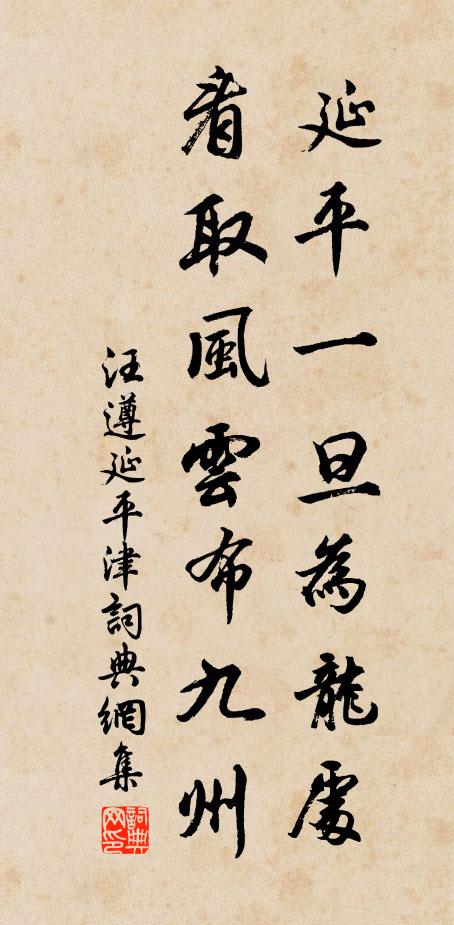 延平一旦為龍處
看取風雲布九州
汪遵延平津詞典網集
詞典网印